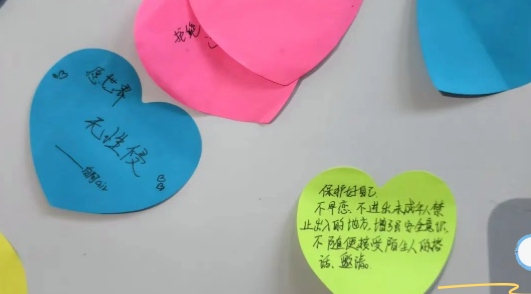 愿世界
无性侵
保护好自己
不早恋、不进出未成年人禁
止出入的地方,增强安全意识
不随便接受陌生人的搭
话、邀请。